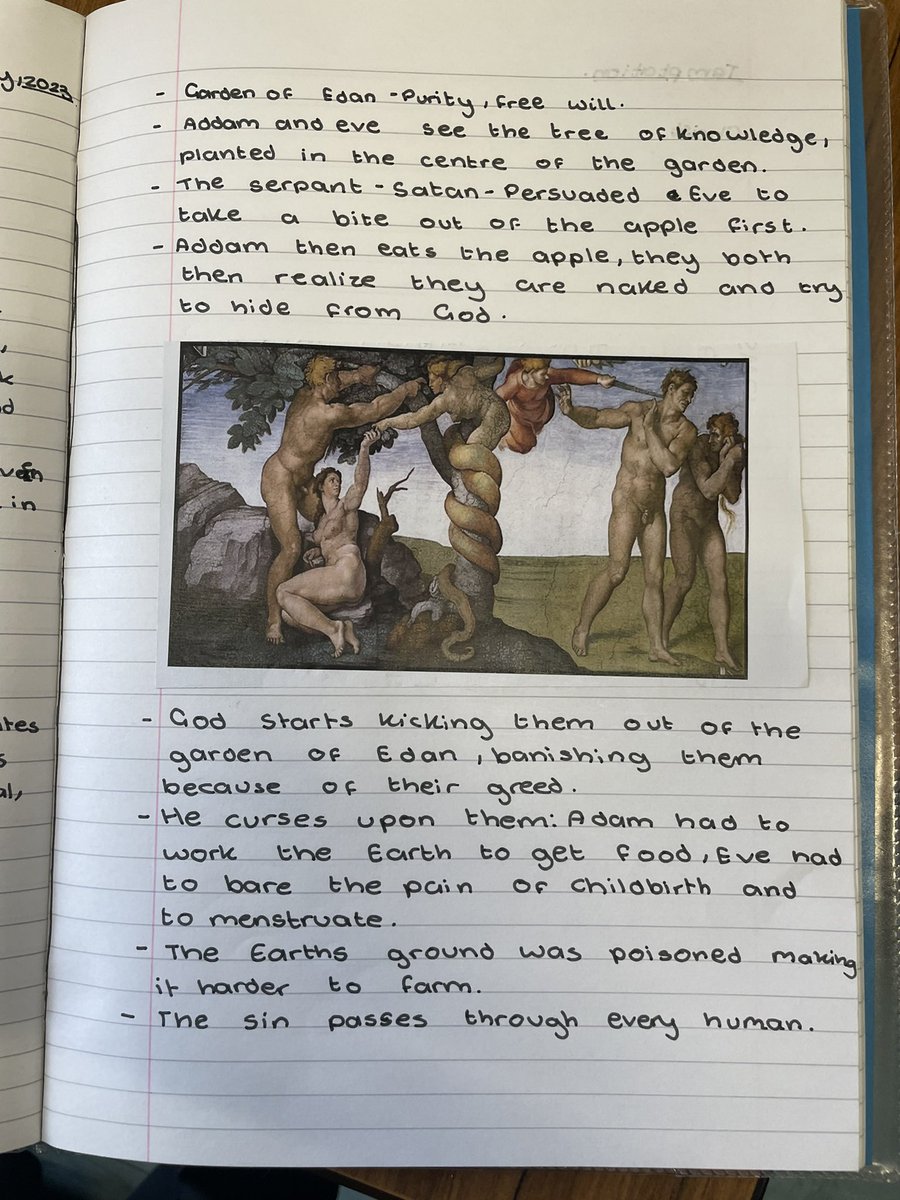 y, 2023
- Garden of Edan - Purity, free will.
- Addam and eve see the tree of knowledge,
planted in the centre of the garden.
- The serpant - Satan - Persuaded Eve to
take a bite out of the apple first.
- Addam then eats the apple, they both
then realize they are naked and try
to hide from God.
- God starts kicking them out of the
garden of Edan, banishing them
because of their greed.
- He curses upon them: Adam had to
work the Earth to get food, Eve had
to bare the pain of childbirth and
to menstruate.
- The Earths ground was poisoned making
it harder to farm.
- The sin passes through every human.